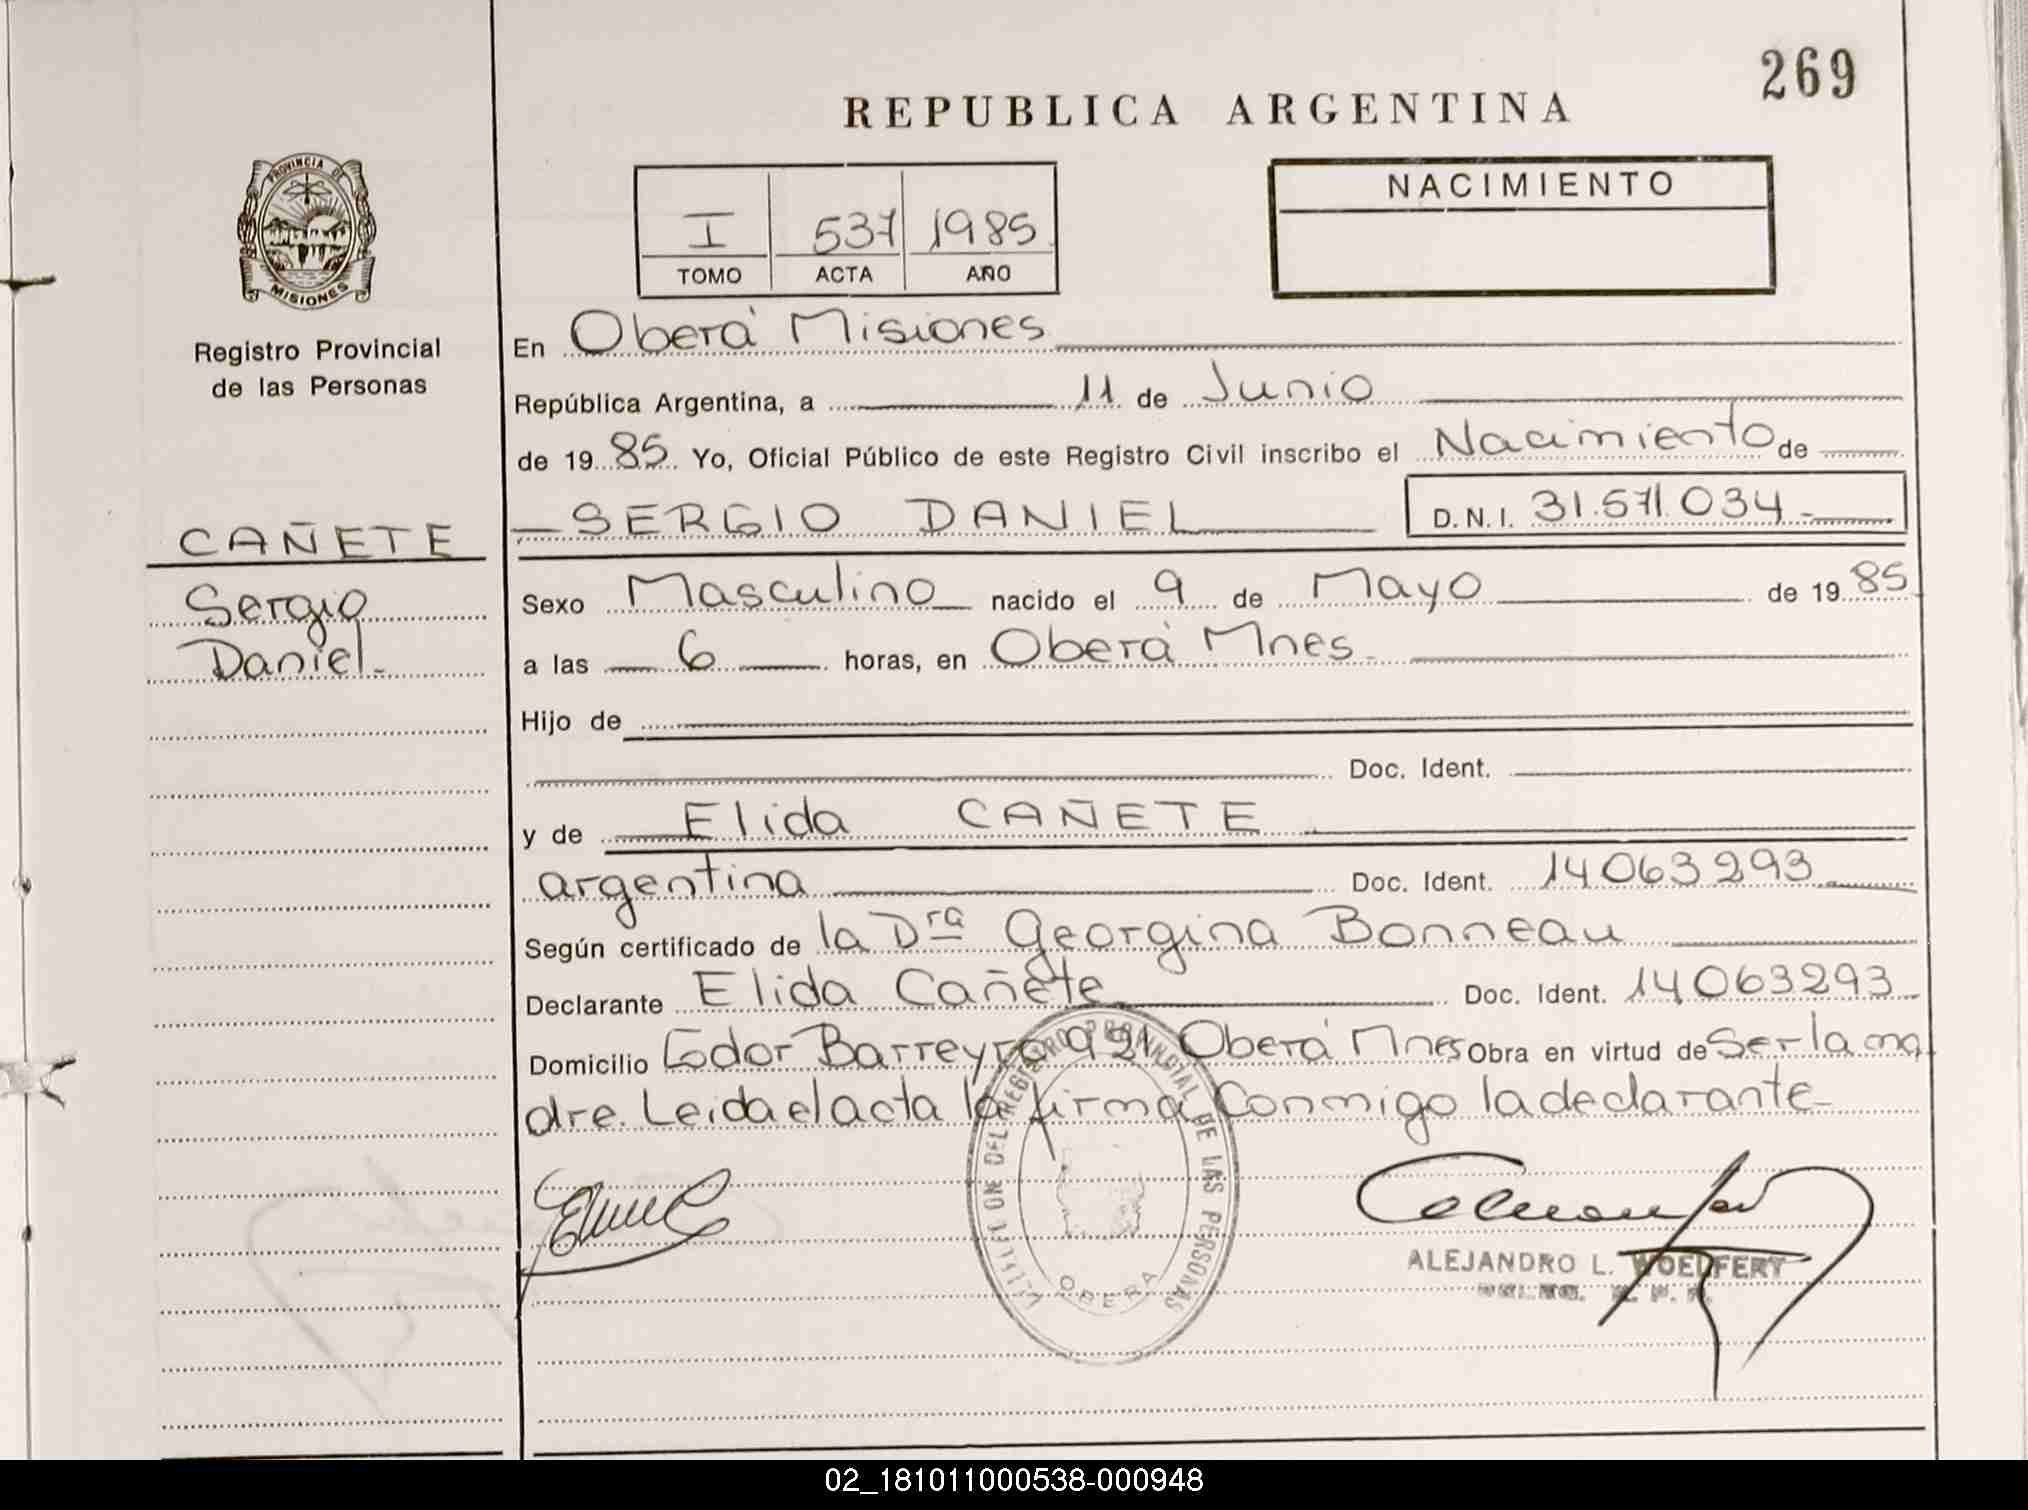 269
REPUBLICA ARGENTINA
PROVINCIA DE
MISIONES
Registro Provincial
de las Personas
I 537 1985
TOMO ACTA AÑO
NACIMIENTO
En Oberá Misiones
República Argentina, a 11 de Junio
de 1985 Yo, Oficial Público de este Registro Civil inscribo el Nacimiento de
SERGIO DANIEL D.N.I. 31.571.034
CAÑETE
Sergio
Daniel
Sexo Masculino nacido el 9 de Mayo de 1985
a las 6 horas, en Oberá Mnes.
Hijo de
Doc. Ident.
y de Elida CAÑETE
argentina Doc. Ident. 14063293
Según certificado de la Dra Georgina Bonneau
Declarante Elida Cañete Doc. Ident. 14063293
Domicilio Barreyro 921 Oberá Mnes Obra en virtud de Ser la ma
dre. Leida el acta la firma Conmigo la declarante
DEL REGISTRO PROVINCIAL DE LAS PERSONAS
OBERA
ALEJANDRO L.
02_181011000538-000948